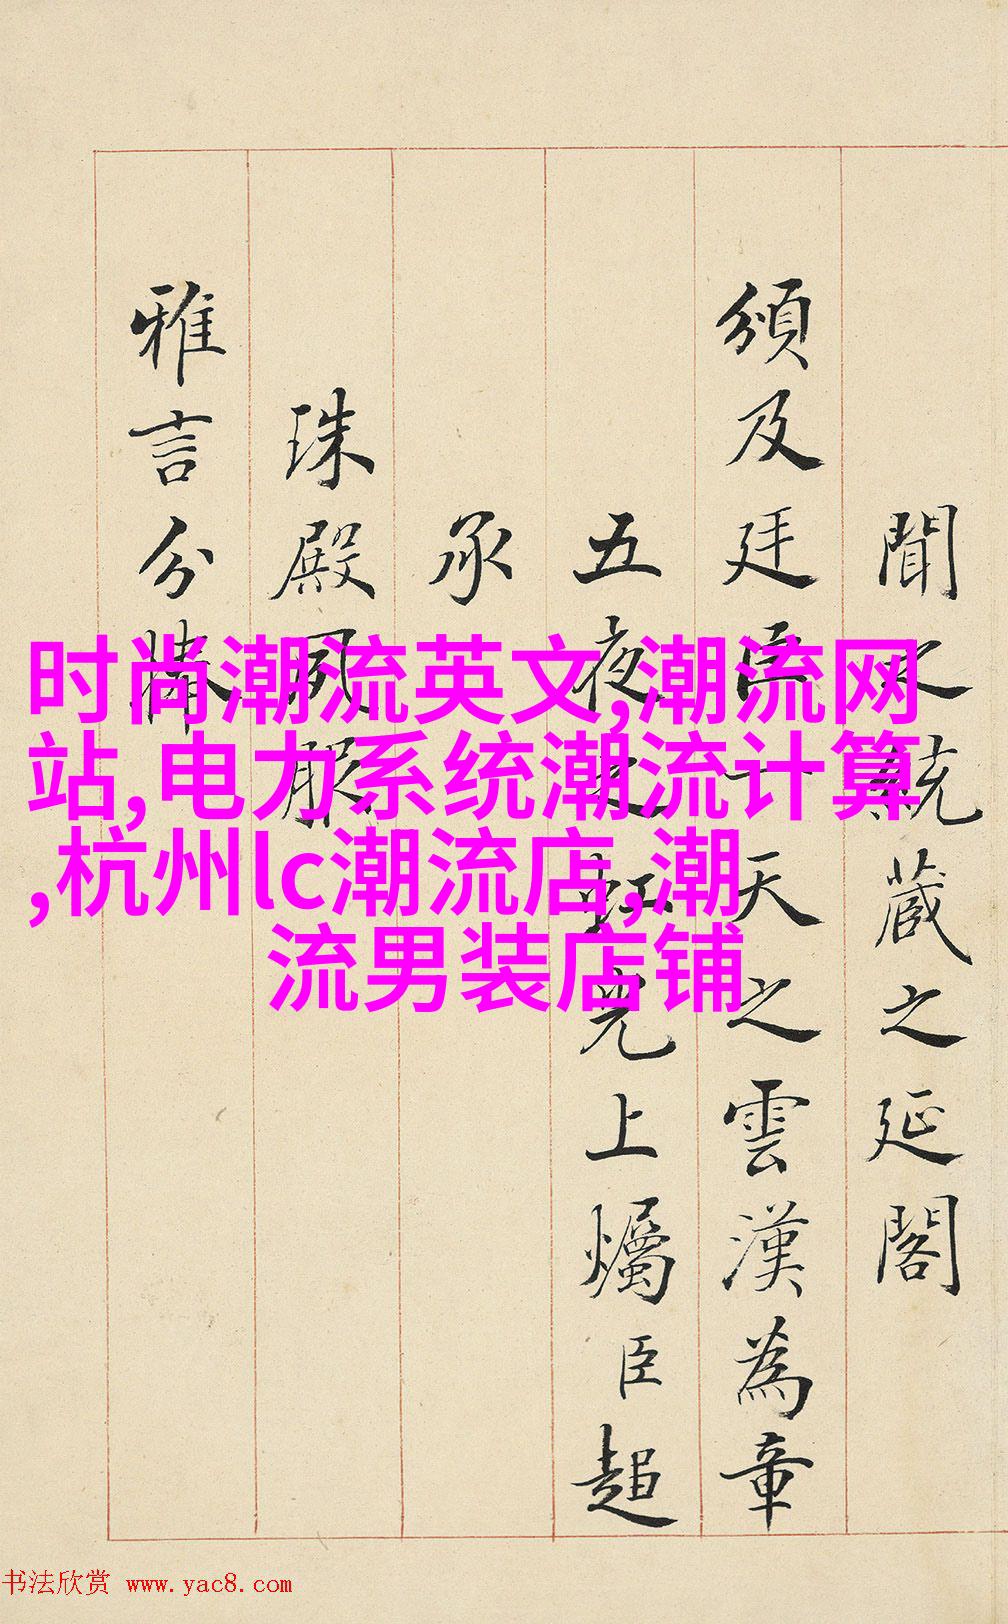 聞之統藏之延閣
頒及廷臣一天之雲漢為章
五夜之虹光上燭臣超
承
珠殿夙服
雅言分
时尚潮流英文,潮流网
站,电力系统潮流计算
,杭州lc潮流店,潮
流男装店铺
书法欣赏 www.yac8.com